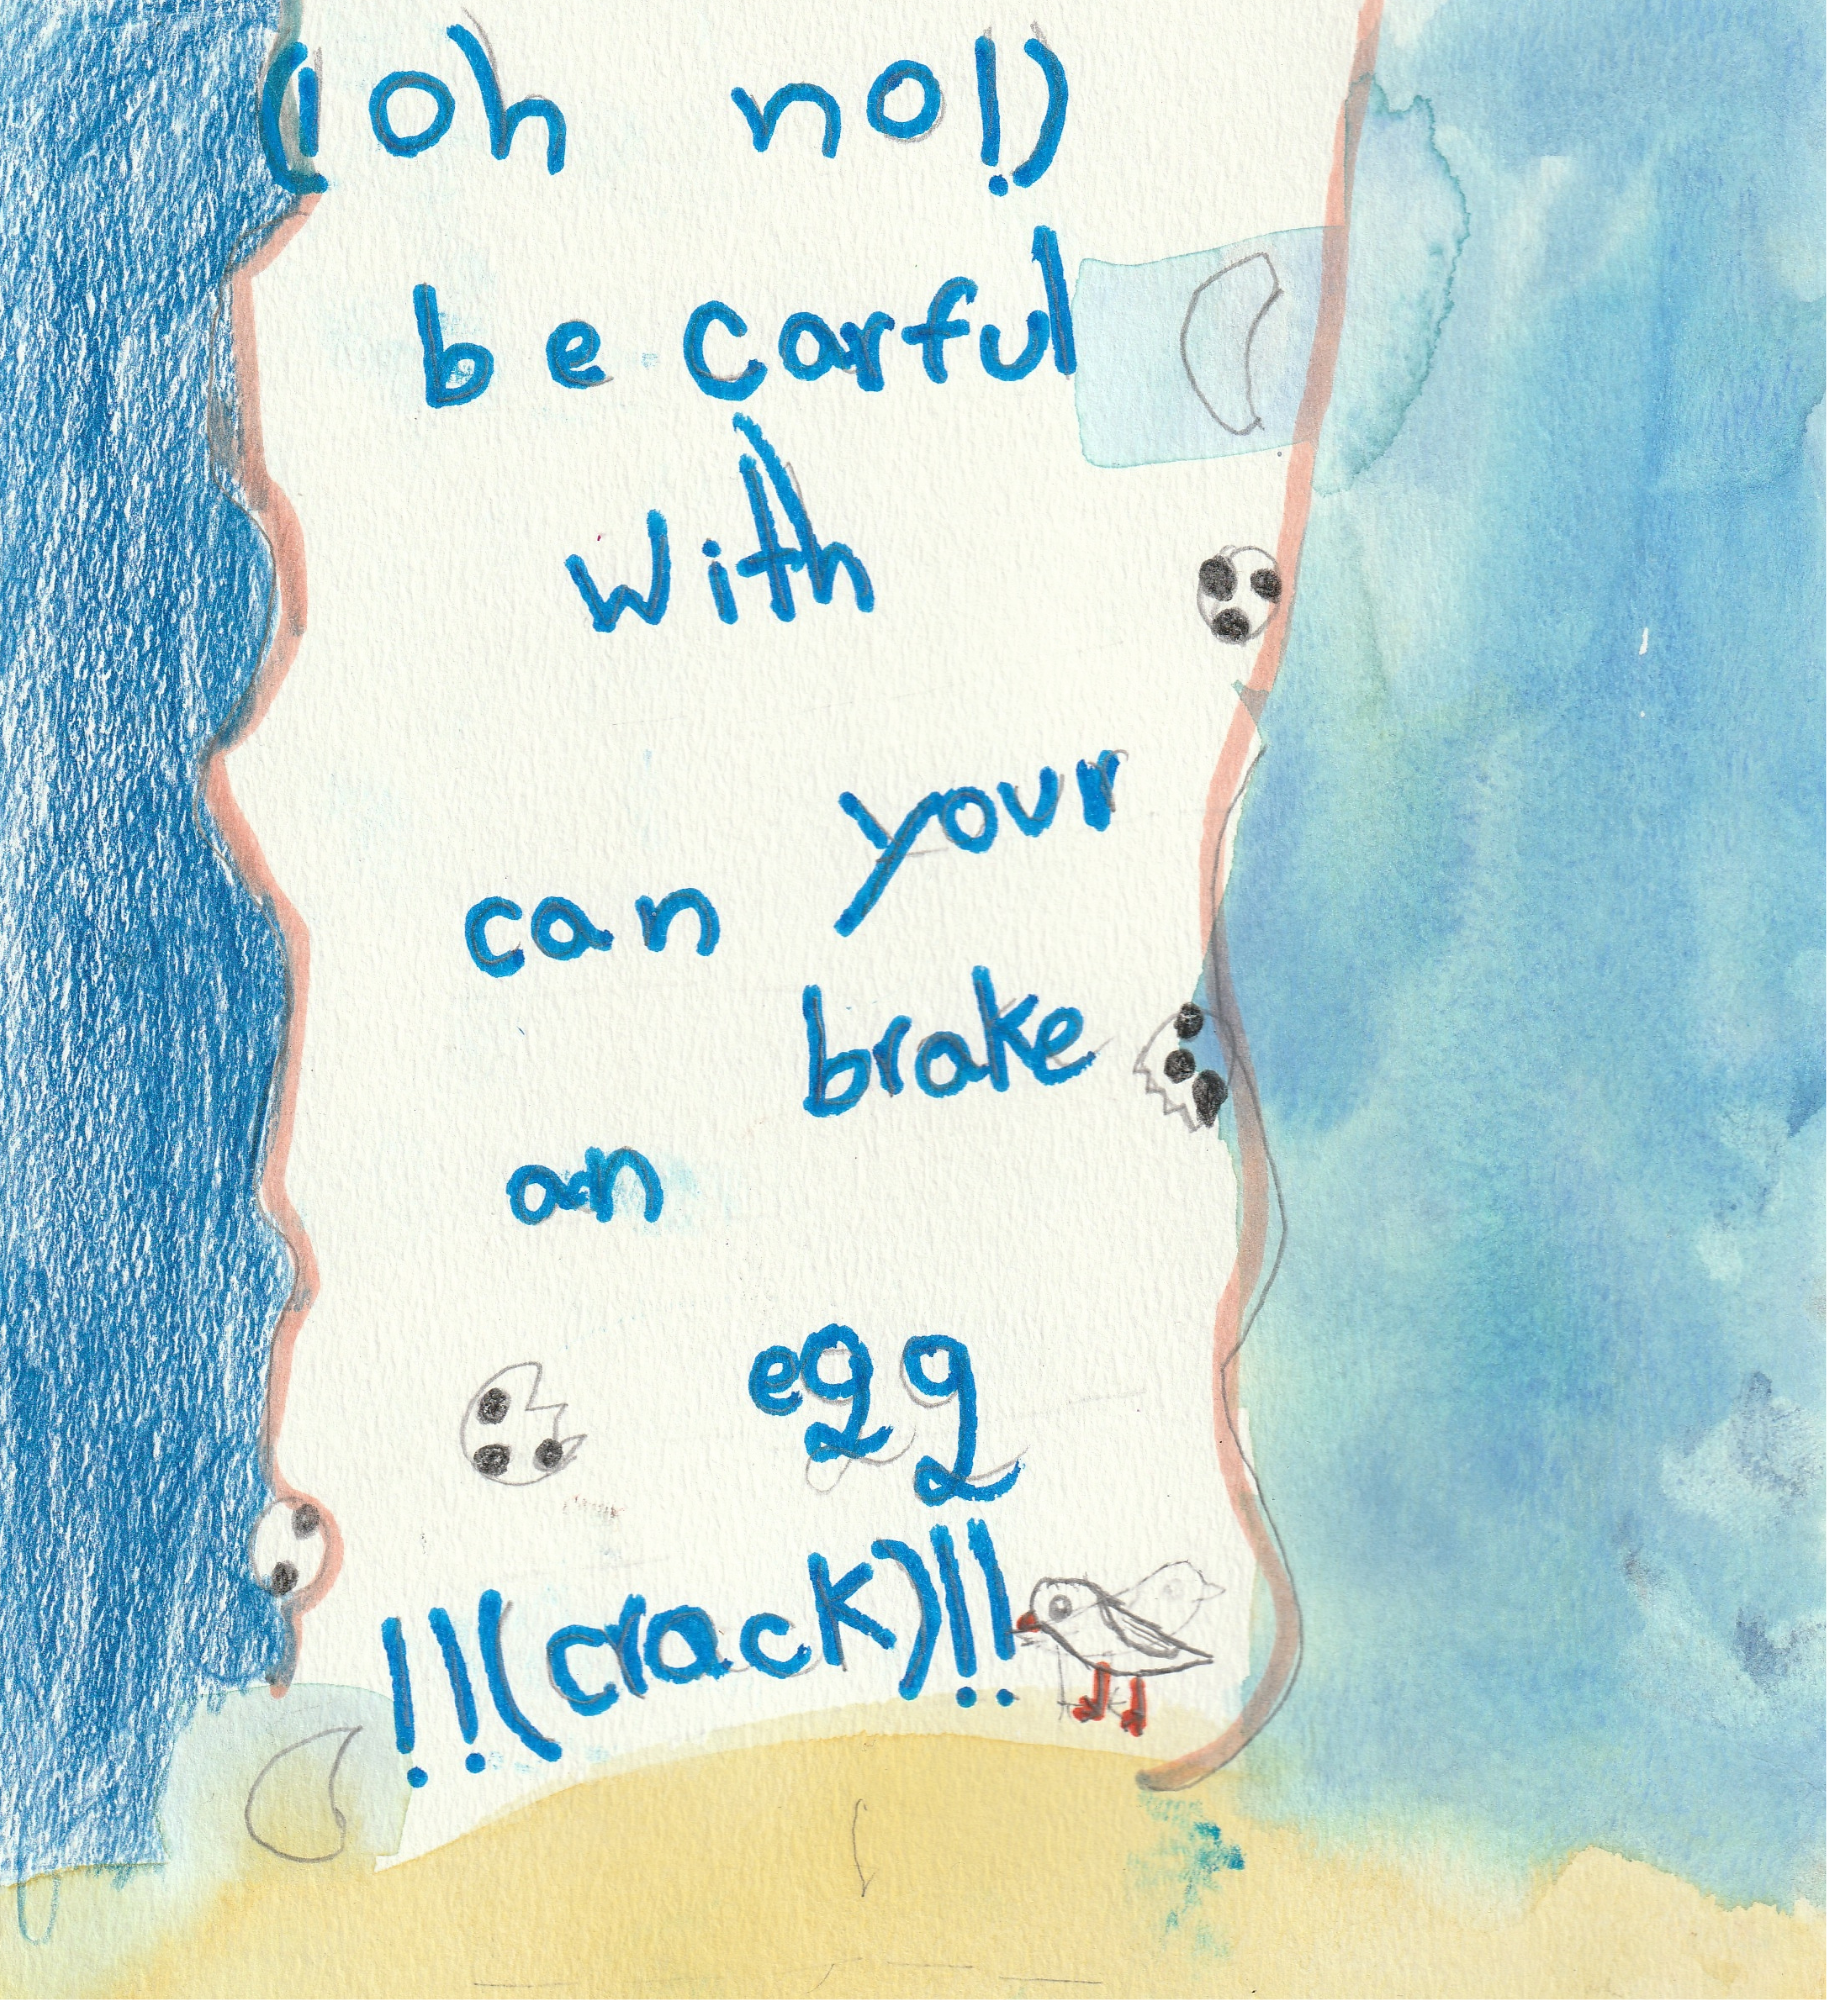 (! oh no!)
be carful
with
your
can
brake
an
egg
!!(crack)!!